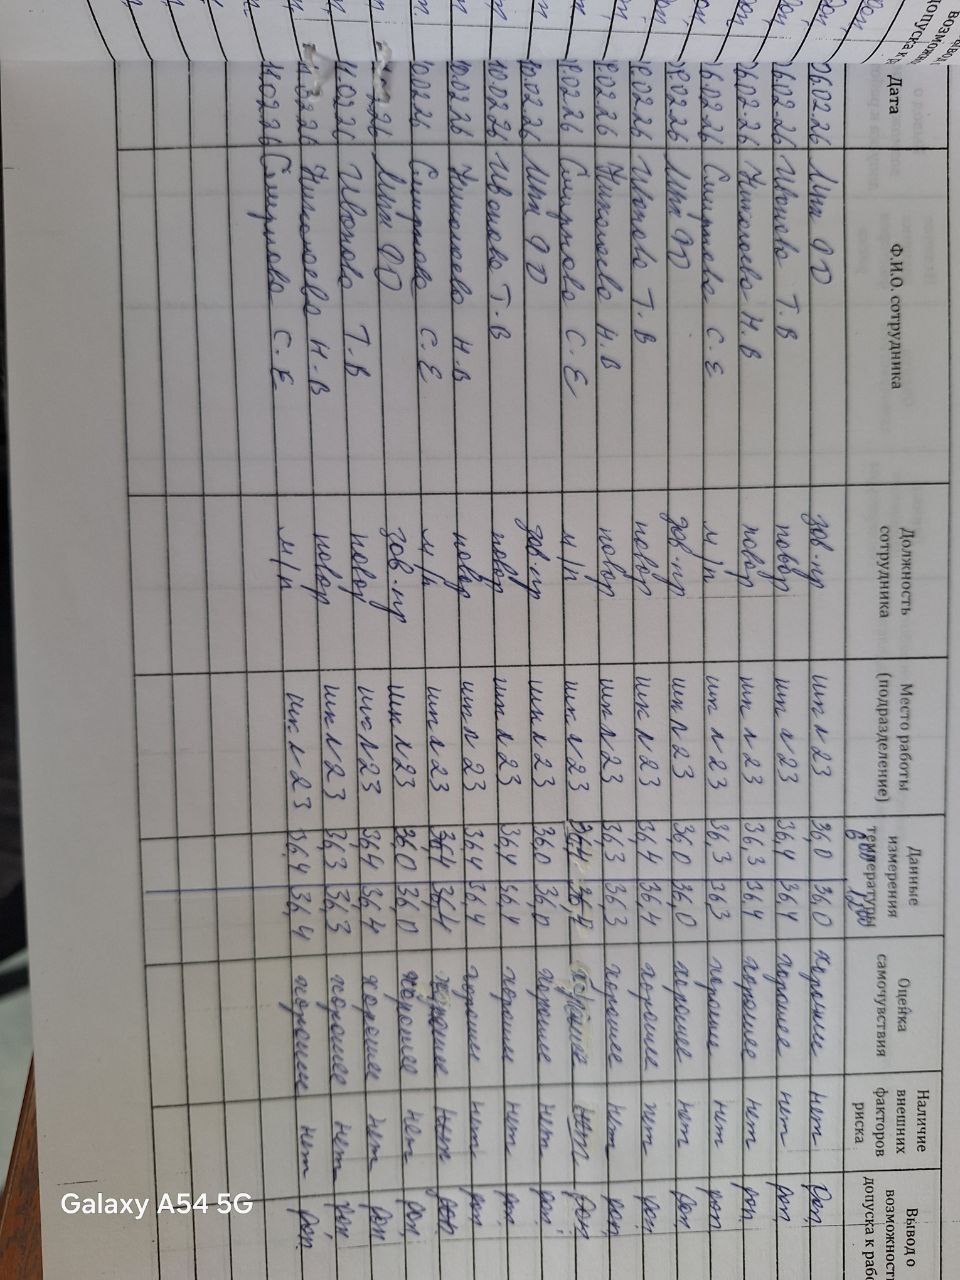 Дата Ф.И.О. сотрудника Должность сотрудника Место работы (подразделение) Данные измерения температуры Оценка самочувствия Наличие внешних факторов риска Вывод о возможност допуска к рабо
06.02.26 зав.пр шк N 23 36,0 36,0 хорошее нет доп.
6.02.26 Иванова Т.В повар шк N 23 36,4 36,4 хорошее нет доп
6.02.26 Николаева Н.В повар шк N 23 36,3 36,4 хорошее нет доп.
6.02.26 Смирнова С.Е м/р шк N 23 36,3 36,3 хорошее нет доп
9.02.26 зав.пр шк N 23 36,0 36,0 хорошее нет доп
9.02.26 Иванова Т.В повар шк N 23 36,4 36,4 хорошее нет доп.
9.02.26 Николаева Н.В повар шк N 23 36,3 36,3 хорошее нет доп
9.02.26 Смирнова С.Е м/р шк N 23 36,4 36,4 хорошее нет доп
10.02.26 зав.пр шк N 23 36,0 36,0 хорошее нет доп.
10.02.26 Иванова Т.В повар шк N 23 36,4 36,4 хорошее нет доп.
10.02.26 Николаева Н.В повар шк N 23 36,4 36,4 хорошее нет доп
10.02.26 Смирнова С.Е м/р шк N 23 36,4 36,4 хорошее нет доп
зав.пр шк N 23 36,0 36,0 хорошее нет доп,
11.02.26 Иванова Т.В повар шк N 23 36,4 36,4 хорошее нет доп
Николаева Н.В повар шк N 23 36,3 36,3 хорошее нет доп,
11.02.26 Смирнова С.Е м/р шк N 23 36,4 36,4 хорошее нет доп.
Galaxy A54 5G